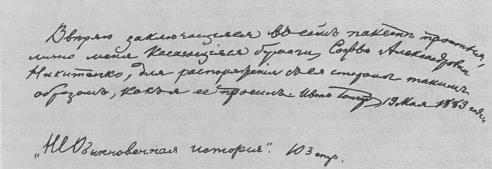 Вверяю заключающіяся въ семъ пакетѣ
лично меня касающіяся бумаги, Софьѣ Александровнѣ
Никитенко, для распоряженія съ ея стороны такимъ
образомъ, какъ я ее просилъ. Иванъ Гончаровъ 19 Мая 1883 года
„Необыкновенная исторія". 103 стр.